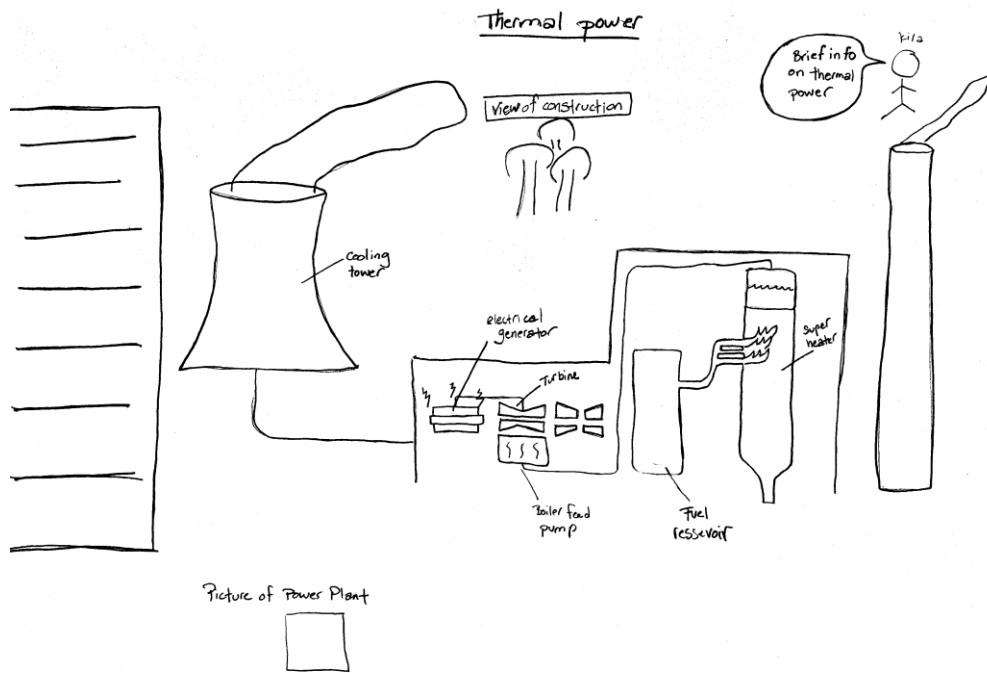 Thermal power
Kila
Brief info
on thermal
power
View of construction
Cooling
tower
electrical
generator
Turbine
super
heater
Boiler feed
pump
Fuel
ressevoir
Picture of Power Plant